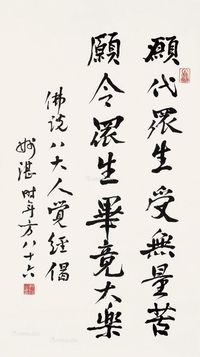 願代眾生受無量苦
願令眾生畢竟大樂
佛說八大人覺經偈
時年方八十六